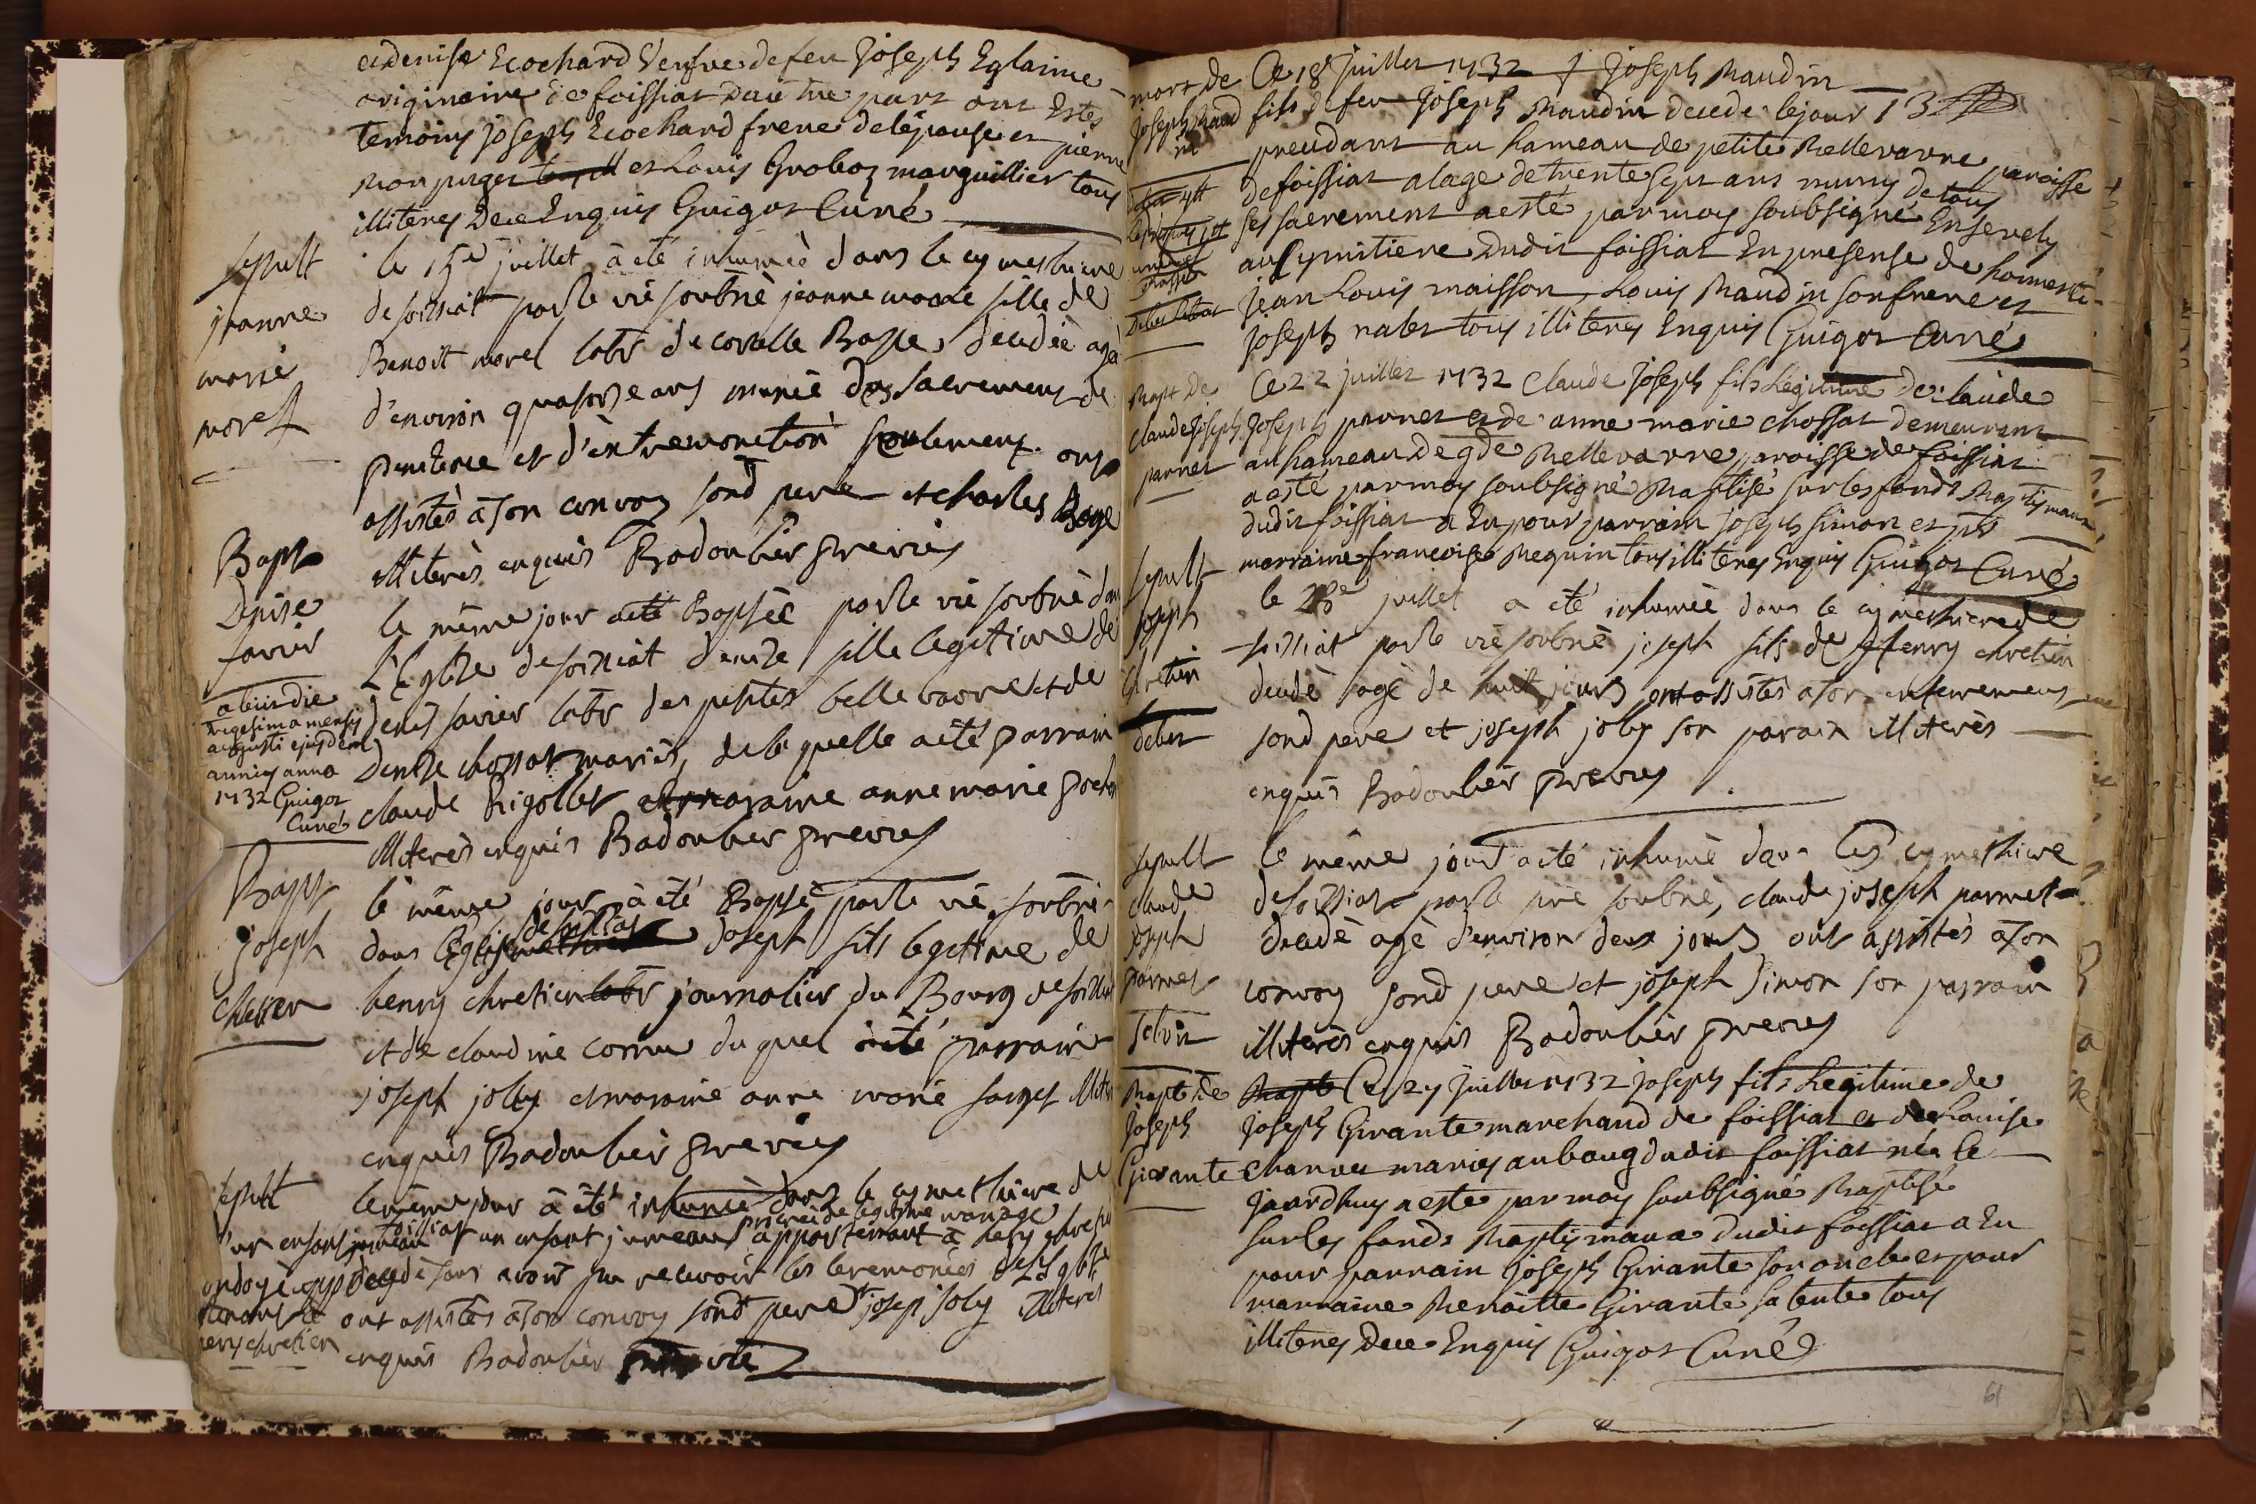 et denise Ecochard Veufve de feu Joseph Eglaine
originaire de foissiat Dautre part ont Estés
temoins joseph Ecochard frere delépouse et pierre
Monpuget et Louis Groboz marguillier tous
illiteres Dece Enquis Guigot Curé
Sepult
jeanne
marie
morel
le 15e juillet à été inhumeè dans le cymethiere
de foissiat par le vic soubnè jeanne marie fille de
Benoit morel labr de corcelle Basse, decedèe ageè
d'environ quatorze ans munie des sacrements de
penitence et d'extremonction seulement ont
assistès à son convoy sond pere et charles Boge
illiterès enquis Badoulier prevics
Bapt
Denise
favier
le même jour a été Baptsée par le vic soubnè dans
L'Eglise de foissiat denise fille legitime de
denis favier labr des petites belle vavre et de
Denise chossat mariès, de la quelle a été parrain
claude Rigollet et maraine anne marie
illiterès enquis Badoulier prevics
abiit die
vigesima mensis
augusti ejusdem
anni anno
1732 Guigot
Curé
Bapt
joseph
chretien
le même jour à été Baptsé par le vic soubnè
dans l'Eglise de foissiat joseph fils legitime de
henry chretien labr journalier du Bourg de foissiat
et de claudine cornu du quel a été parrain
joseph joly et maraine anne marie farget illiterès
enquis Badoulier prevics
Sepult
d'un enfant jumeau
ondoyè
henry chretien
le même jour à été inhumè dans le cymethiere de
foissiat un enfant jumeau procréé de legitime mariage appartenant à henry chretien
decedè sans avoir pu recevoir les ceremonies de l'Eglise
ont assistès à son convoy sond pere et joseph joly illiterès
enquis Badoulier
mort de
Joseph Maud
in
Ce 18 juillet 1732 Joseph Maudin
fils de feu Joseph Maudin decede le jour 13
precedant au hameau de petite Bellevavre paroisse
de foissiat a lage de trente sept ans muny de tous
ses sacrement a esté par moy soubsigné Ensevely
au Cymitiere dudit foissiat En presense de honneste
Jean Louis maisson, Louis Maudin son frere et
Joseph nalet tous illiteres Enquis Guigot Curé
Bapt de
Claude Joseph
parnet
Ce 22 juillet 1732 Claude Joseph fils Legitime de Claude
Joseph parnet et de anne marie chossat demeurant
au hameau de gde Bellevavre paroisse de foissiat
a esté par moy soubsigné Baptisé sur les fonds Baptismaux
dudit foissiat a Eu pour parrain joseph simon et pr
marraine francoise Nequin tous illiteres Enquis Guigot Curé
Sepult
joseph
chretien
debet
le 23e juillet a été inhumèe dans le cymethiere de
foissiat par le vic soubnè joseph fils de henry chretien
decedè agè de huit jours ont assistès a son enterrement
sond pere et joseph joly son parain illiterès
enquis Badoulier prevics
Sepult
claude
joseph
parnet
solvit
le même jour a été inhumè dans les cymethiere
de foissiat par le vic soubné, claude joseph parnet
decedè agè d'environ deux jours ont assistès a son
convoy sond pere et joseph Simon son parrain
illiterès enquis Badoulier prevics
Bapt de
Joseph
Girante
Ce 27 juillet 1732 joseph fils Legitime de
Joseph Girante marchand de foissiat et de Louise
Charvet mariez au boug dudit foissiat née le
jourdhuy a este par moy soubsigné Baptisé
sur les fonds Baptismaux dudit foissiat a Eu
pour parrain Joseph Girante son oncle et pour
marraine Benoitte Girante sa tente tous
illiteres Dece Enquis Guigot Curé
61